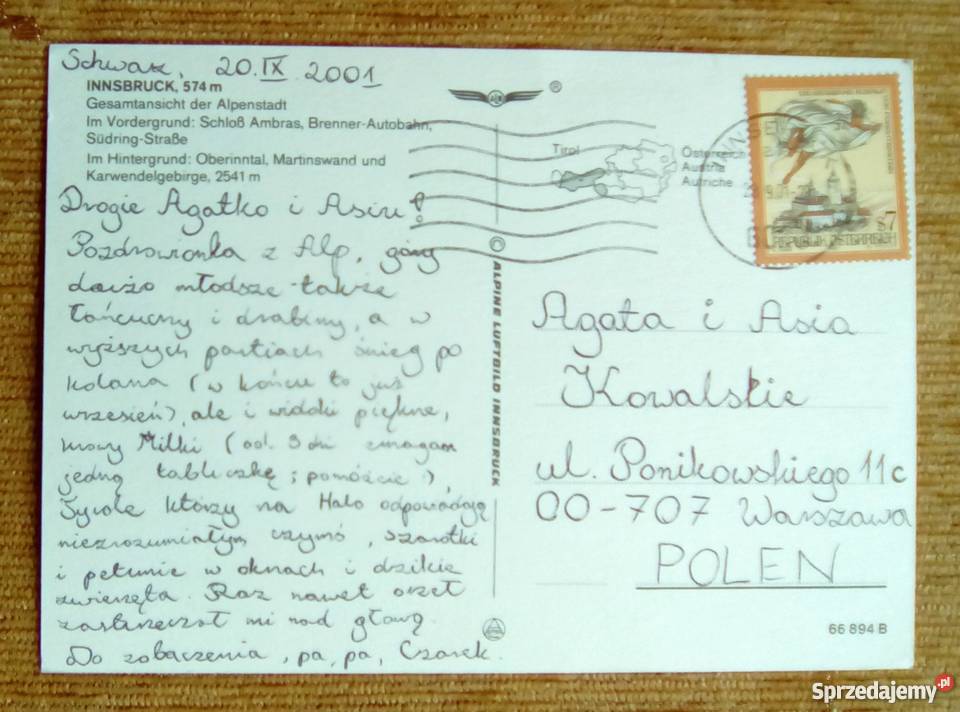 Schwaz, 20.IX.2001
INNSBRUCK, 574 m
Gesamtansicht der Alpenstadt
Im Vordergrund: Schloß Ambras, Brenner-Autobahn,
Südring-Straße
Im Hintergrund: Oberinntal, Martinswand und
Karwendelgebirge, 2541 m
®
Tirol
Österreich
Austria
Autriche
REPUBLIK ÖSTERREICH
S7
Drogie Agatko i Asiu!
Pozdrowionka z Alp, góry
dużo młodsze także
łańcuchy i drabiny, a w
wyższych partiach śnieg po
kolana (w końcu to już
wrzesień), ale i widoki piękne,
krowy Milki (od 3 dni zmagam
jedną tabliczkę; pomóżcie!),
Tyrole którzy na Halo odpowiadają
niezrozumiałym czymś, szarotki
i petunie w oknach i dzikie
zwierzęta. Raz nawet orzeł
zaskrzeczał mi nad głową.
Do zobaczenia, pa, pa, Czarek.
© ALPINE LUFTBILD INNSBRUCK
Agata i Asia
Kowalskie
ul. Ponikowskiego 11c
00-707 Warszawa
POLEN
66 894 B
Sprzedajemy.pl